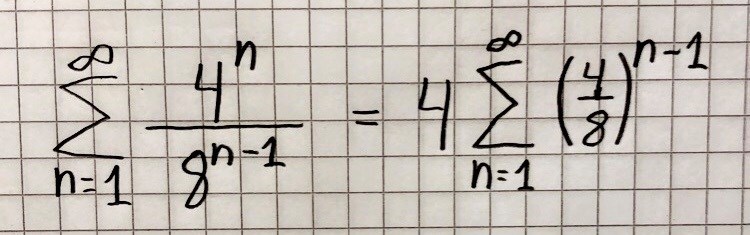 ∞∑n=1 4^n / 8^(n-1) = 4 ∞∑n=1 (4/8)^(n-1)